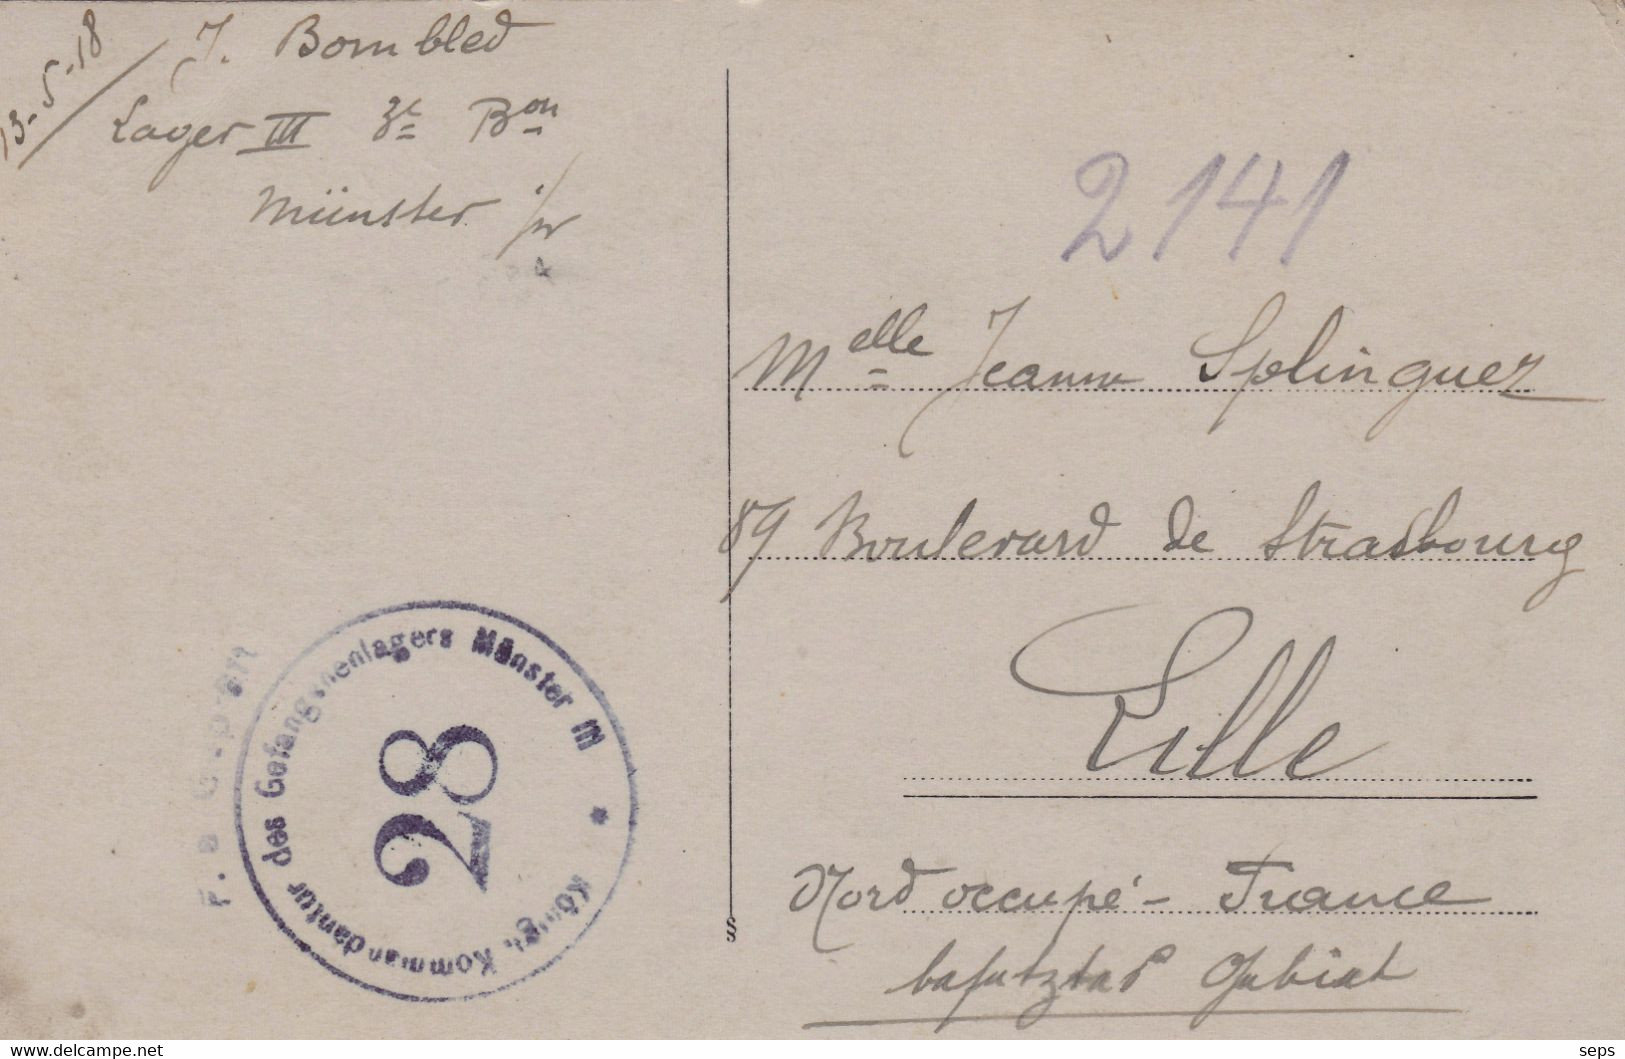 13-5-18
J. Bombled
Lager III 3e Bon
Münster i/w
2141
Melle Jeanne Splinguez
89 Boulevard de Strasbourg
Lille
Nord occupé - France
besetztes Gebiet
Königl. Kommandantur des Gefangenenlagers Münster III *
28
F.a.
§
www.delcampe.net
seps